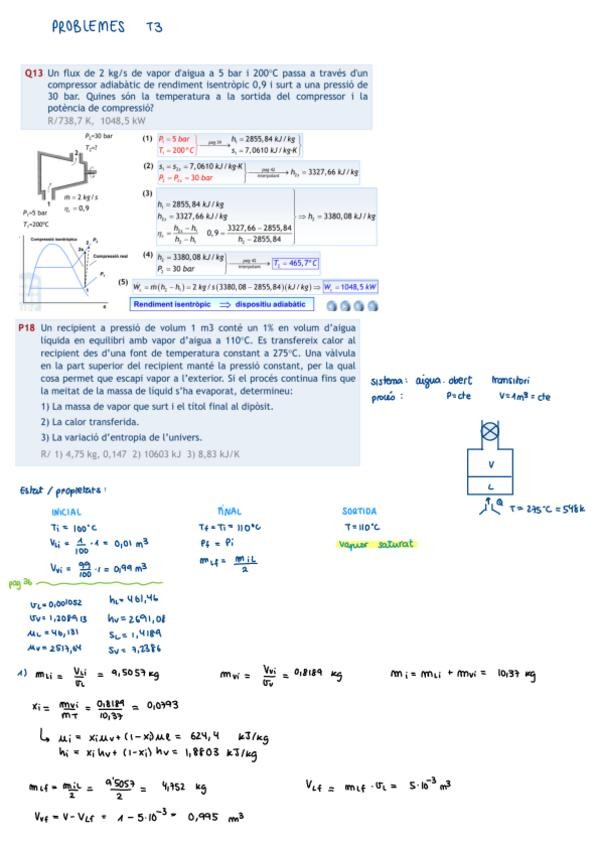 PROBLEMES T3
Q13 Un flux de 2 kg/s de vapor d'aigua a 5 bar i 200°C passa a través d'un
compressor adiabàtic de rendiment isentròpic 0,9 i surt a una pressió de
30 bar. Quines són la temperatura a la sortida del compressor i la
potència de compressió?
R/738,7 K, 1048,5 kW
P₂=30 bar
T₂=?
2
1
ṁ = 2 kg/s
η = 0,9
P₁=5 bar
T₁=200°C
(1) P₁ = 5 bar T₁ = 200°C h₁ = 2855,84 kJ/kg s₁ = 7,0610 kJ/kg·K
(2) s₁ = s₂ₛ = 7,0610 kJ/kg·K P₂ = P₂ₛ = 30 bar pag 42 interpolant h₂ₛ = 3327,66 kJ/kg
(3) h₁ = 2855,84 kJ/kg
h₂ₛ = 3327,66 kJ/kg ⇒ h₂ = 3380,08 kJ/kg
ηc = (h₂ₛ − h₁)/(h₂ − h₁) 0,9 = (3327,66 − 2855,84)/(h₂ − 2855,84)
Compressió isentròpica
Compressió real
(4) h₂ = 3380,08 kJ/kg P₂ = 30 bar interpolant T₂ = 465,7°C
(5) Ẇc = ṁ(h₂ − h₁) = 2 kg/s(3380,08 − 2855,84)(kJ/kg) ⇒ Ẇc = 1048,5 kW
Rendiment isentròpic ⇒ dispositiu adiabàtic
P18 Un recipient a pressió de volum 1 m3 conté un 1% en volum d'aigua
líquida en equilibri amb vapor d'aigua a 110°C. Es transfereix calor al
recipient des d'una font de temperatura constant a 275°C. Una vàlvula
en la part superior del recipient manté la pressió constant, per la qual
cosa permet que escapi vapor a l'exterior. Si el procés continua fins que
la meitat de la massa de líquid s'ha evaporat, determineu:
1) La massa de vapor que surt i el títol final al dipòsit.
2) La calor transferida.
3) La variació d'entropia de l'univers.
R/ 1) 4,75 kg, 0,147 2) 10603 kJ 3) 8,83 kJ/K
sistema: aigua. obert transitori
procés: P=cte V=1m³ = cte
V
L
Q
T = 275°C = 548K
Estat / propietats:
INICIAL FINAL SORTIDA
Ti = 100°C Tf = Ti = 110°C T=110°C
VLi = 1/100 · 1 = 0,01 m³ Pf = Pi vapor saturat
Vvi = 99/100 · 1 = 0,99 m³ mLf = miL/2
pag 36
vL = 0,001052 hL = 461,46
vv = 1,20893 hv = 2691,08
uL = 46,131 sL = 1,4189
uv = 2517,64 sv = 7,2386
1) mLi = VLi/vL = 9,5057 kg mvi = Vvi/vv = 0,8189 kg mi = mLi + mvi = 10,37 kg
xi = mvi/mT = 0,8189/10,37 = 0,0793
↳ ui = xiuv + (1-x)uL = 624,4 kJ/kg
hi = xihv + (1-xi) hv = 1,8803 kJ/kg
mLf = miL/2 = 9'5057/2 = 4,752 kg VLf = mLf · vL = 5·10⁻³ m³
Vvf = V - VLf = 1 - 5·10⁻³ = 0,995 m³